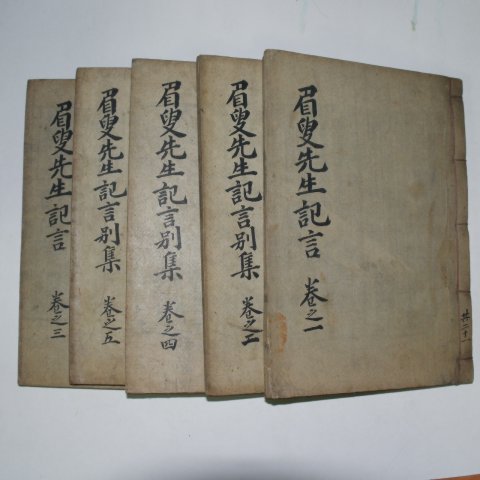 眉叟先生記言 卷之一
共二十
眉叟先生記言別集 卷之二
眉叟先生記言別集 卷之四
眉叟先生記言別集 卷之五
眉叟先生記言 卷之三